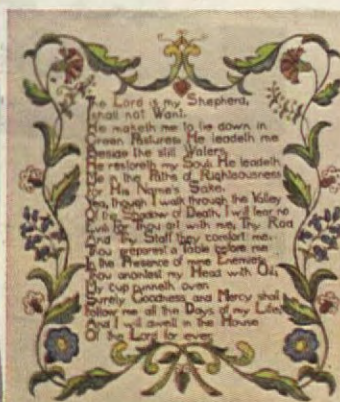 The Lord is my Shepherd,
I shall not Want.
He maketh me to lie down in
Green Pastures: He leadeth me
Beside the still Waters.
He restoreth my Soul: He leadeth
Me in the Paths of Righteousness
For His Name's Sake.
Yea, though I walk through the Valley
Of the Shadow of Death, I will fear no
Evil: For Thou art with me; Thy Rod
And Thy Staff they comfort me.
Thou preparest a Table before me
In the Presence of mine Enemies;
Thou anointest my Head with Oil;
My Cup runneth over.
Surely Goodness and Mercy shall
Follow me all the Days of my Life;
And I will dwell in the House
Of the Lord for ever.